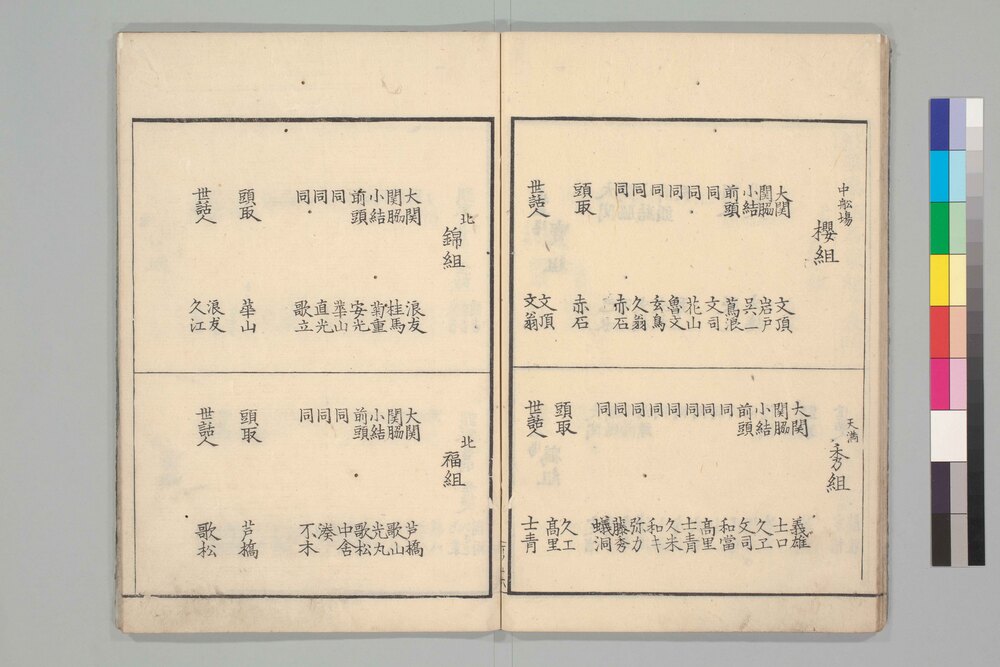 中舩場
櫻組
大関 文頂
関脇 岩戸
小結 呉二
前頭 蔦浪
同 文司
同 花山
同 魯文
同 玄鳥
同 久翁
同 赤石
頭取 赤石
世話人 文頂
文翁
天満
秀組
大関 義雄
関脇 士口
小結 久ヱ
前頭 文司
同 和當
同 高里
同 士青
同 久米
同 和キ
同 弥力
同 藤秀
同 蟻洞
頭取 久エ
高里
世話人 士青
北
錦組
大関 浪友
関脇 桂馬
小結 菊重
前頭 安光
同 崋山
同 直光
同 歌立
頭取 崋山
世話人 浪友
久江
北
福組
大関 芦橋
関脇 歌山
小結 光丸
前頭 歌松
同 中舎
同 湊
同 不木
頭取 芦橋
世話人 歌松